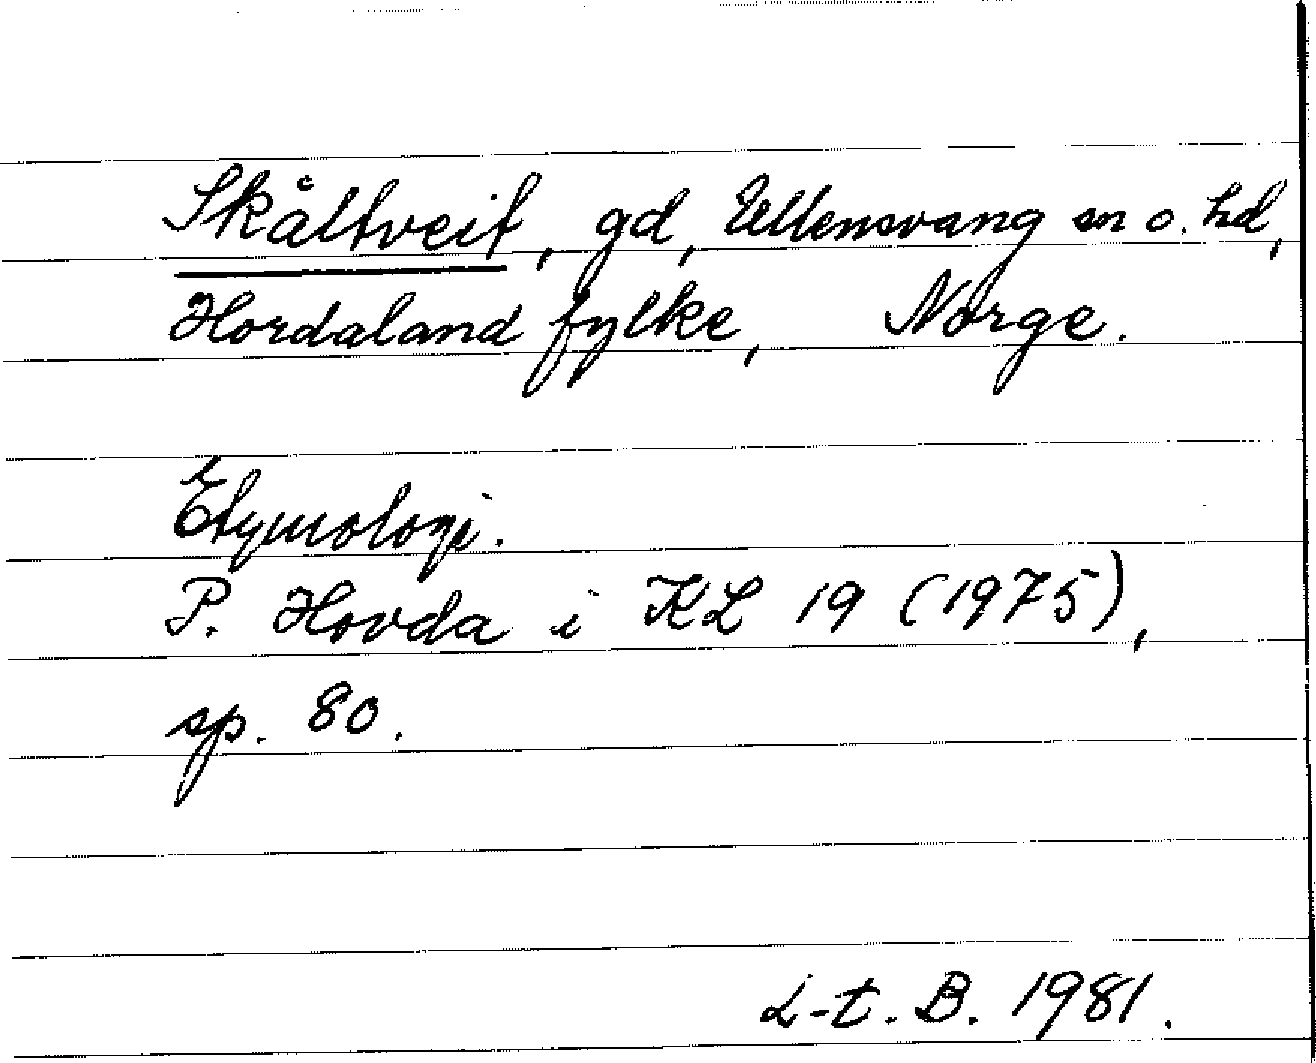 Skåltveit, gd, Ullensvang sn o. hd,
Hordaland fylke, Norge.
Etymologi.
P. Hovda i KL 19 (1975),
sp. 80.
L-t. B. 1981.